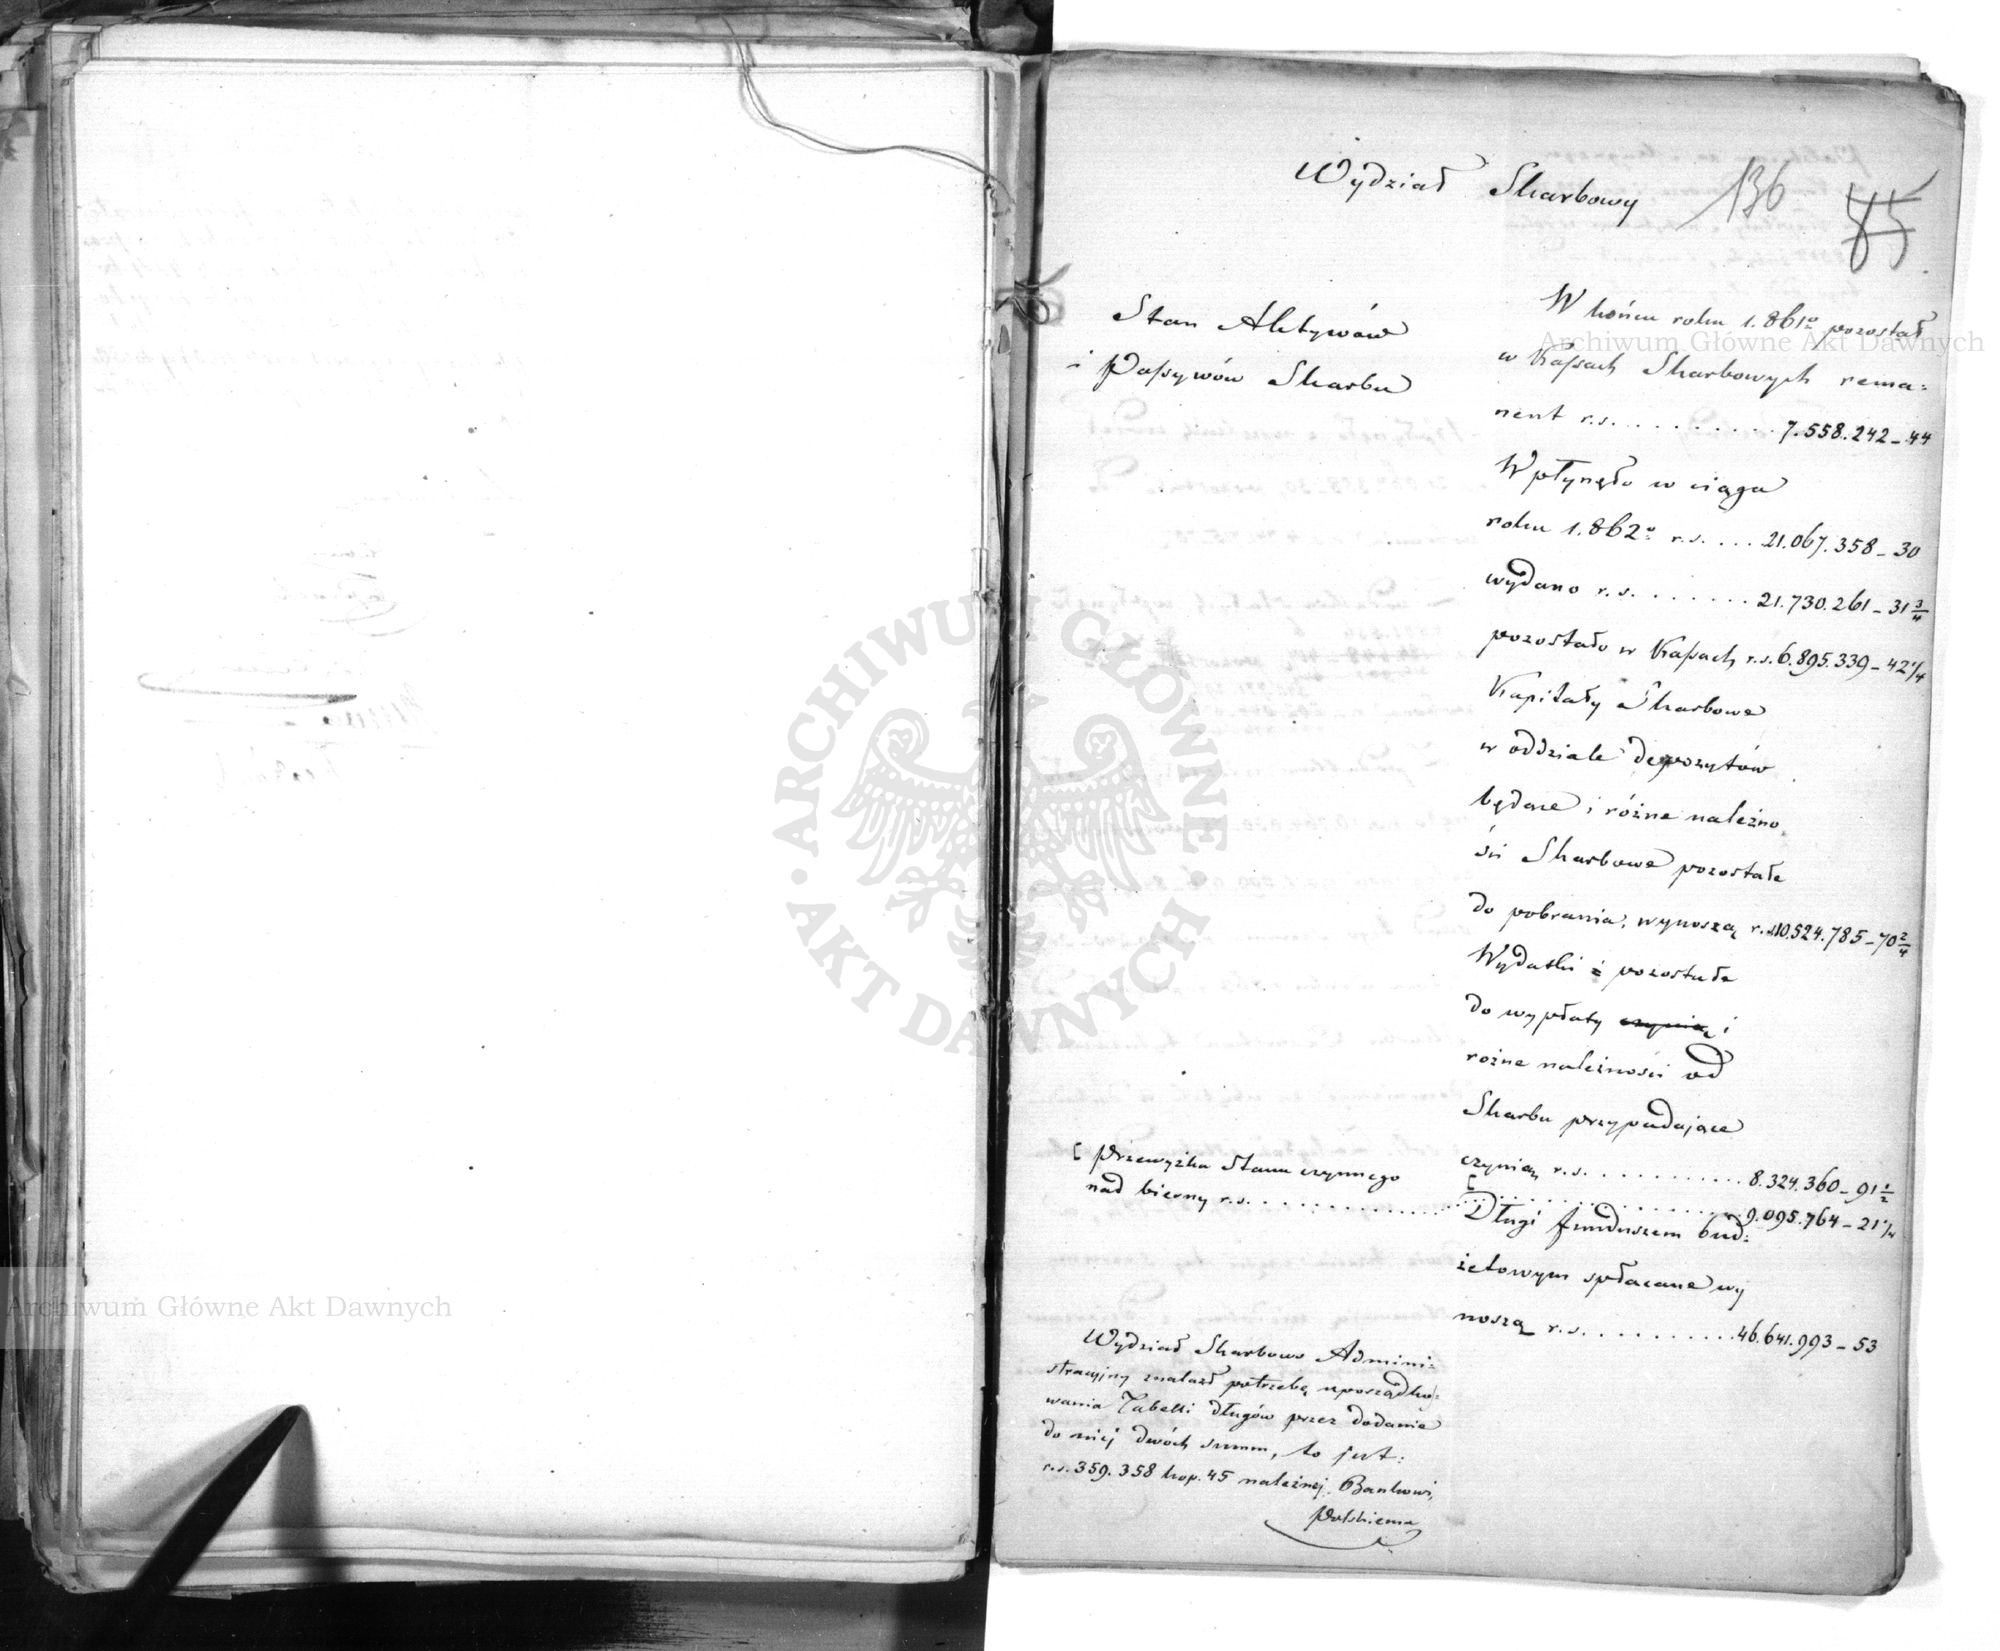 Wydział Skarbowy
136
85
Stan Aktywów
i Passywów Skarbu
W końcu roku 1.861º pozostał
w Kassach Skarbowych rema=
nent r.s. . . . . . . . . . . 7.558.242 _ 44
Wpłynęło w ciągu
roku 1.862º r.s. . . . 21.067.358 _ 30
wydano r.s. . . . . . . . 21.730.261 _ 31 3/4
pozostało w Kassach r.s. 6.895.339 _ 42 1/4
Kapitały Skarbowe
w oddziale depozytów
będące i różne należno
ści Skarbowe pozostałe
do pobrania, wynoszą r.s. 10.524.785 _ 70 2/4
Wydatki pozostałe
do wypłaty czynią i
rożne należności od
Skarbu przypadające
czynią r.s. . . . . . . . . . . . 8.324.360 _ 91 1/2
[ Przewyżka Stanu czynnego
nad bierny r.s. . . . . . . . . . . . . . [ . . . . . . . . . . . . 9.095.764 _ 21 1/4
Długi funduszem bud=
żetowym spłacane wy
noszą r.s. . . . . . . . . . . . 46.641.993 _ 53
Wydział Skarbowo Admini=
stracyjny znalazł potrzebę uporządko=
wania Tabelli długów przez dodanie
do niej dwóch summ, to jest:
r.s. 359.358 kop. 45 należnej Bankowi,
Polskiemu
Archiwum Główne Akt Dawnych
Archiwum Główne Akt Dawnych
ARCHIWUM GŁÓWNE
AKT DAWNYCH